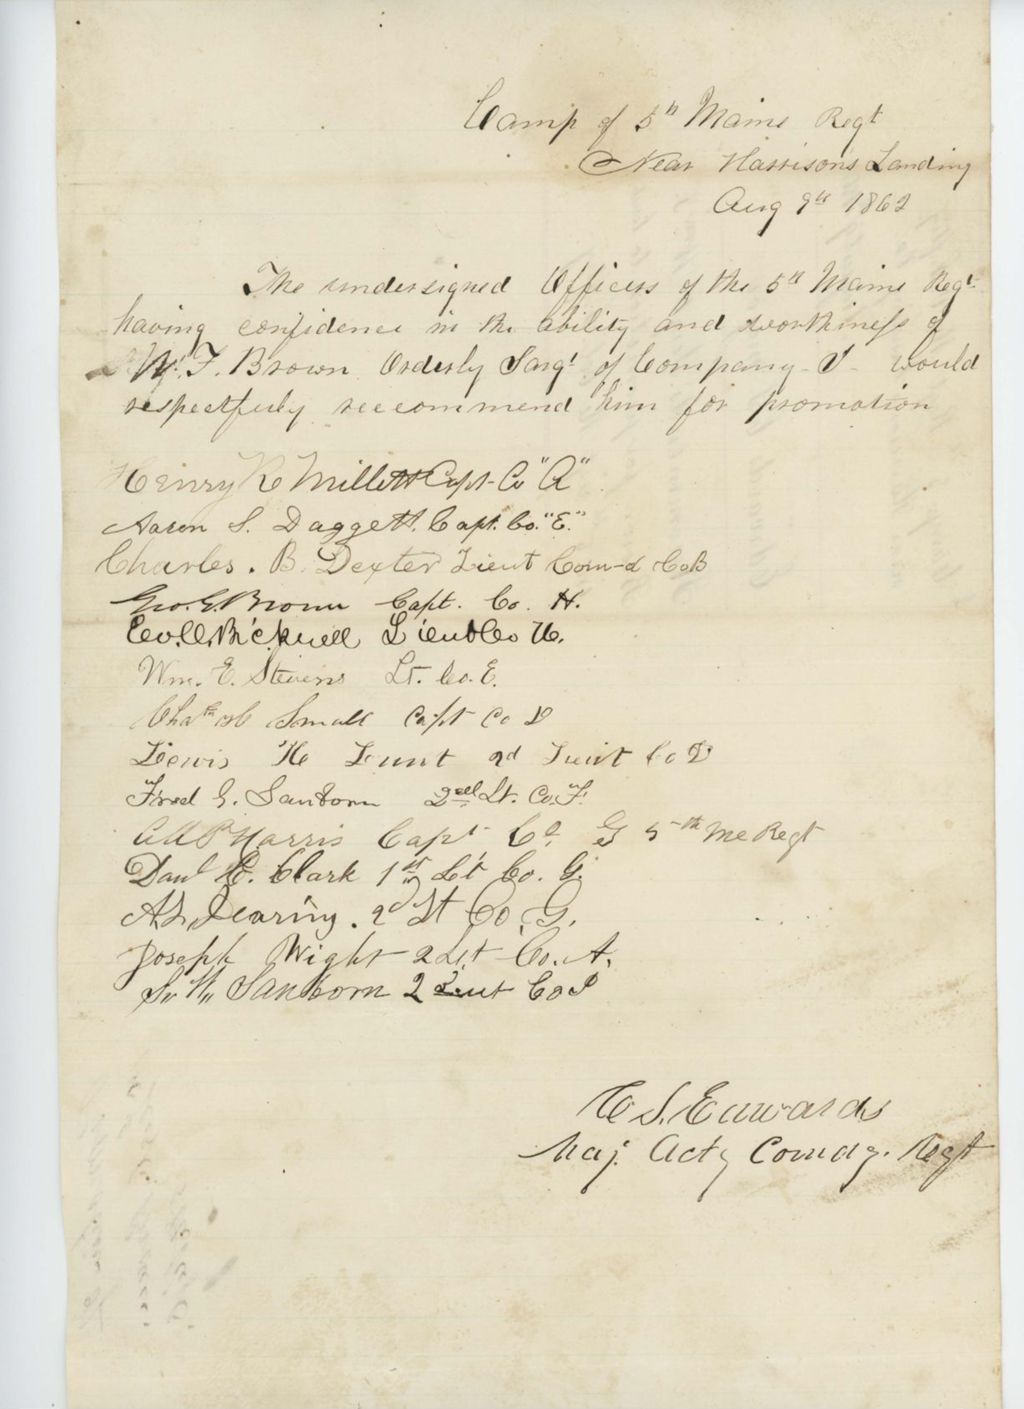 Camp of 5th Maine Regt
Near Harrison's Landing
Aug 9th 1862
The undersigned Officers of the 5th Maine Regt
having confidence in the ability and worthiness of
Wm. F. Brown Orderly Sargt of Company - I - would
respectfully reccommend him for promotion
Henry R Millett Capt Co "A"
Aaron S. Daggett. Capt. Co. "E."
Charles. B. Dexter Lieut Com-d Co B
Geo. E. Brown Capt. Co. H.
Bicknell Lieut Co H.
Wm. E. Stevens Lt. Co. E.
Small Capt Co D
Lewis H Lunt 2d Lieut Co D
Fred G. Sanborn 2nd Lt. Co. F.
Harris Capt Co. G 5th Me Regt
Danl C. Clark 1st Lt Co. G.
Dearing. 2d Lt Co. G.
Joseph Wight 2 Lt Co. A.
Sanborn 2 Lieut Co I
C S. Edwards
Maj. Actg Comdg. Regt